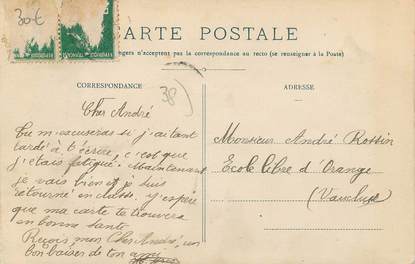 30€
CARTE POSTALE
ngers n'acceptent pas la correspondance au recto (se renseigner à la Poste)
CORRESPONDANCE
ADRESSE
38)
Cher André
Tu m'escuseras si j'ai tant
tardé à t'écrire, c'est que
j'étais fatigué. Maintenant
je vais bien et je suis
retourné en classe. J'espère
que ma carte te trouvera
en bonne santé
Reçois mon Cher André, un
bon baiser de ton ami
Monsieur André Rossin
Ecole libre d'Orange
(Vaucluse)